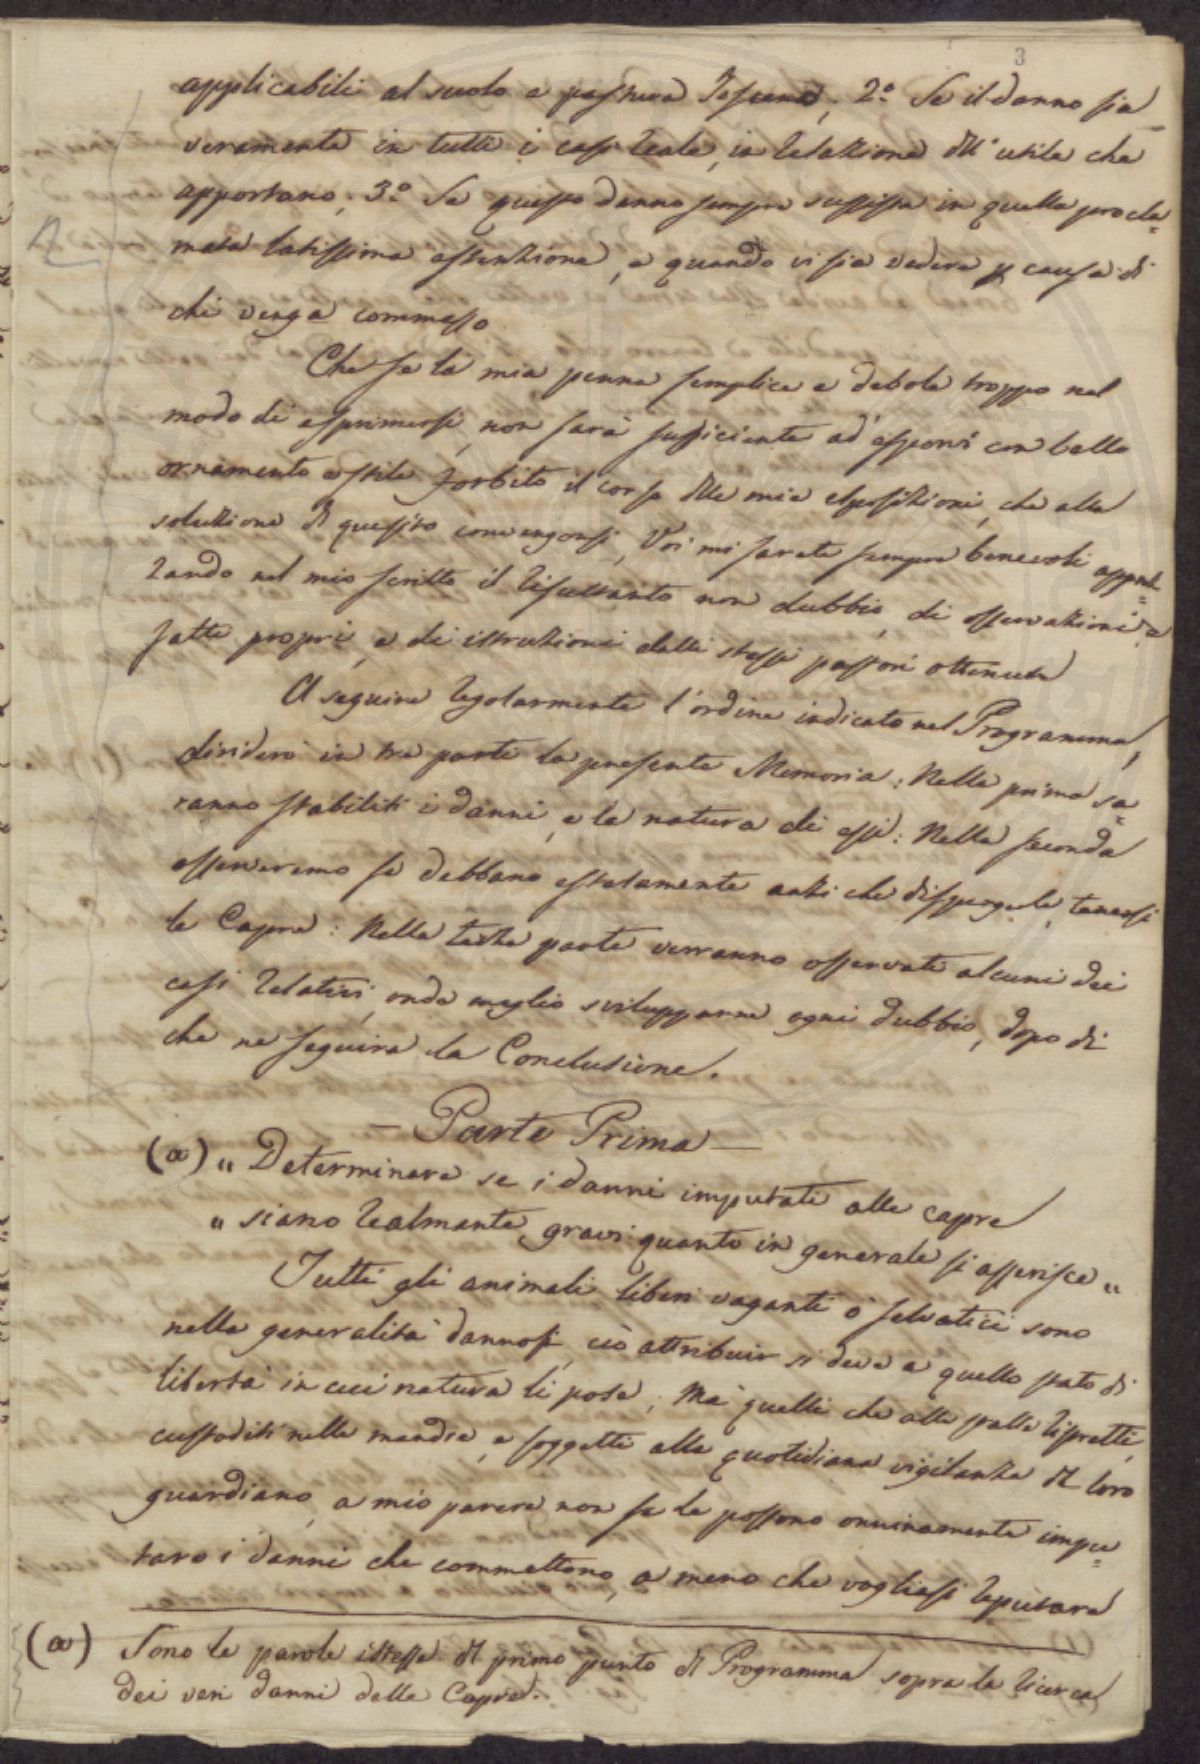 3
applicabili al suolo e pastura Toscana; 2.o Se il danno sia
veramente in tutti i casi reale, in relazione all'utile che
apportano; 3.o Se questo danno sempre sussista in quella procla=
mata latissima estenzione, e quando vi sia vedere p causa di
chi venga commesso.
Che se la mia penna semplice e debole troppo nel
modo di esprimersi, non sarà sufficiente ad esporvi con bello
ornamento e stile forbito il corso dlle mie esposizioni, che alla
soluzione di quesito convengonsi, Voi mi sarete sempre benevoli apprez=
zando nel mio scritto il risultanto non dubbio, di osservazioni e
fatti propri, e di istruzioni dalli stessi pastori ottenute
A seguire regolarmente l'ordine indicato nel Programma,
dividerò in tre parti la presente Memoria: Nella prima sa=
ranno stabiliti i danni, e la natura di essi: Nella seconda
osserveremo se debbano assolutamente anzi che disperderle, tenersi
le Capre: Nella terza parte verranno osservati alcuni dei
casi relativi, onde meglio svilupparne ogni dubbio, dopo di
che ne seguirà la Conclusione.
— Parte Prima —
(a) „ Determinare se i danni imputati alle capre
„ siano realmente gravi quanto in generale si asserisce „
Tutti gli animali liberi vaganti o selvatici sono
nella generalità dannosi, ciò attribuir si deve a quello stato di
libertà in cui natura li pose; Ma quelli che alle stalle ristretti,
custoditi nelle mandrie, e soggetti alla quotidiana vigilanza dl loro
guardiano, a mio parere non se le possono onninamente impu=
tare i danni che commettono, a meno che vogliasi reputare
(a) Sono le parole istesse dl primo punto dl Programma sopra la ricerca
dei veri danni delle Capre.